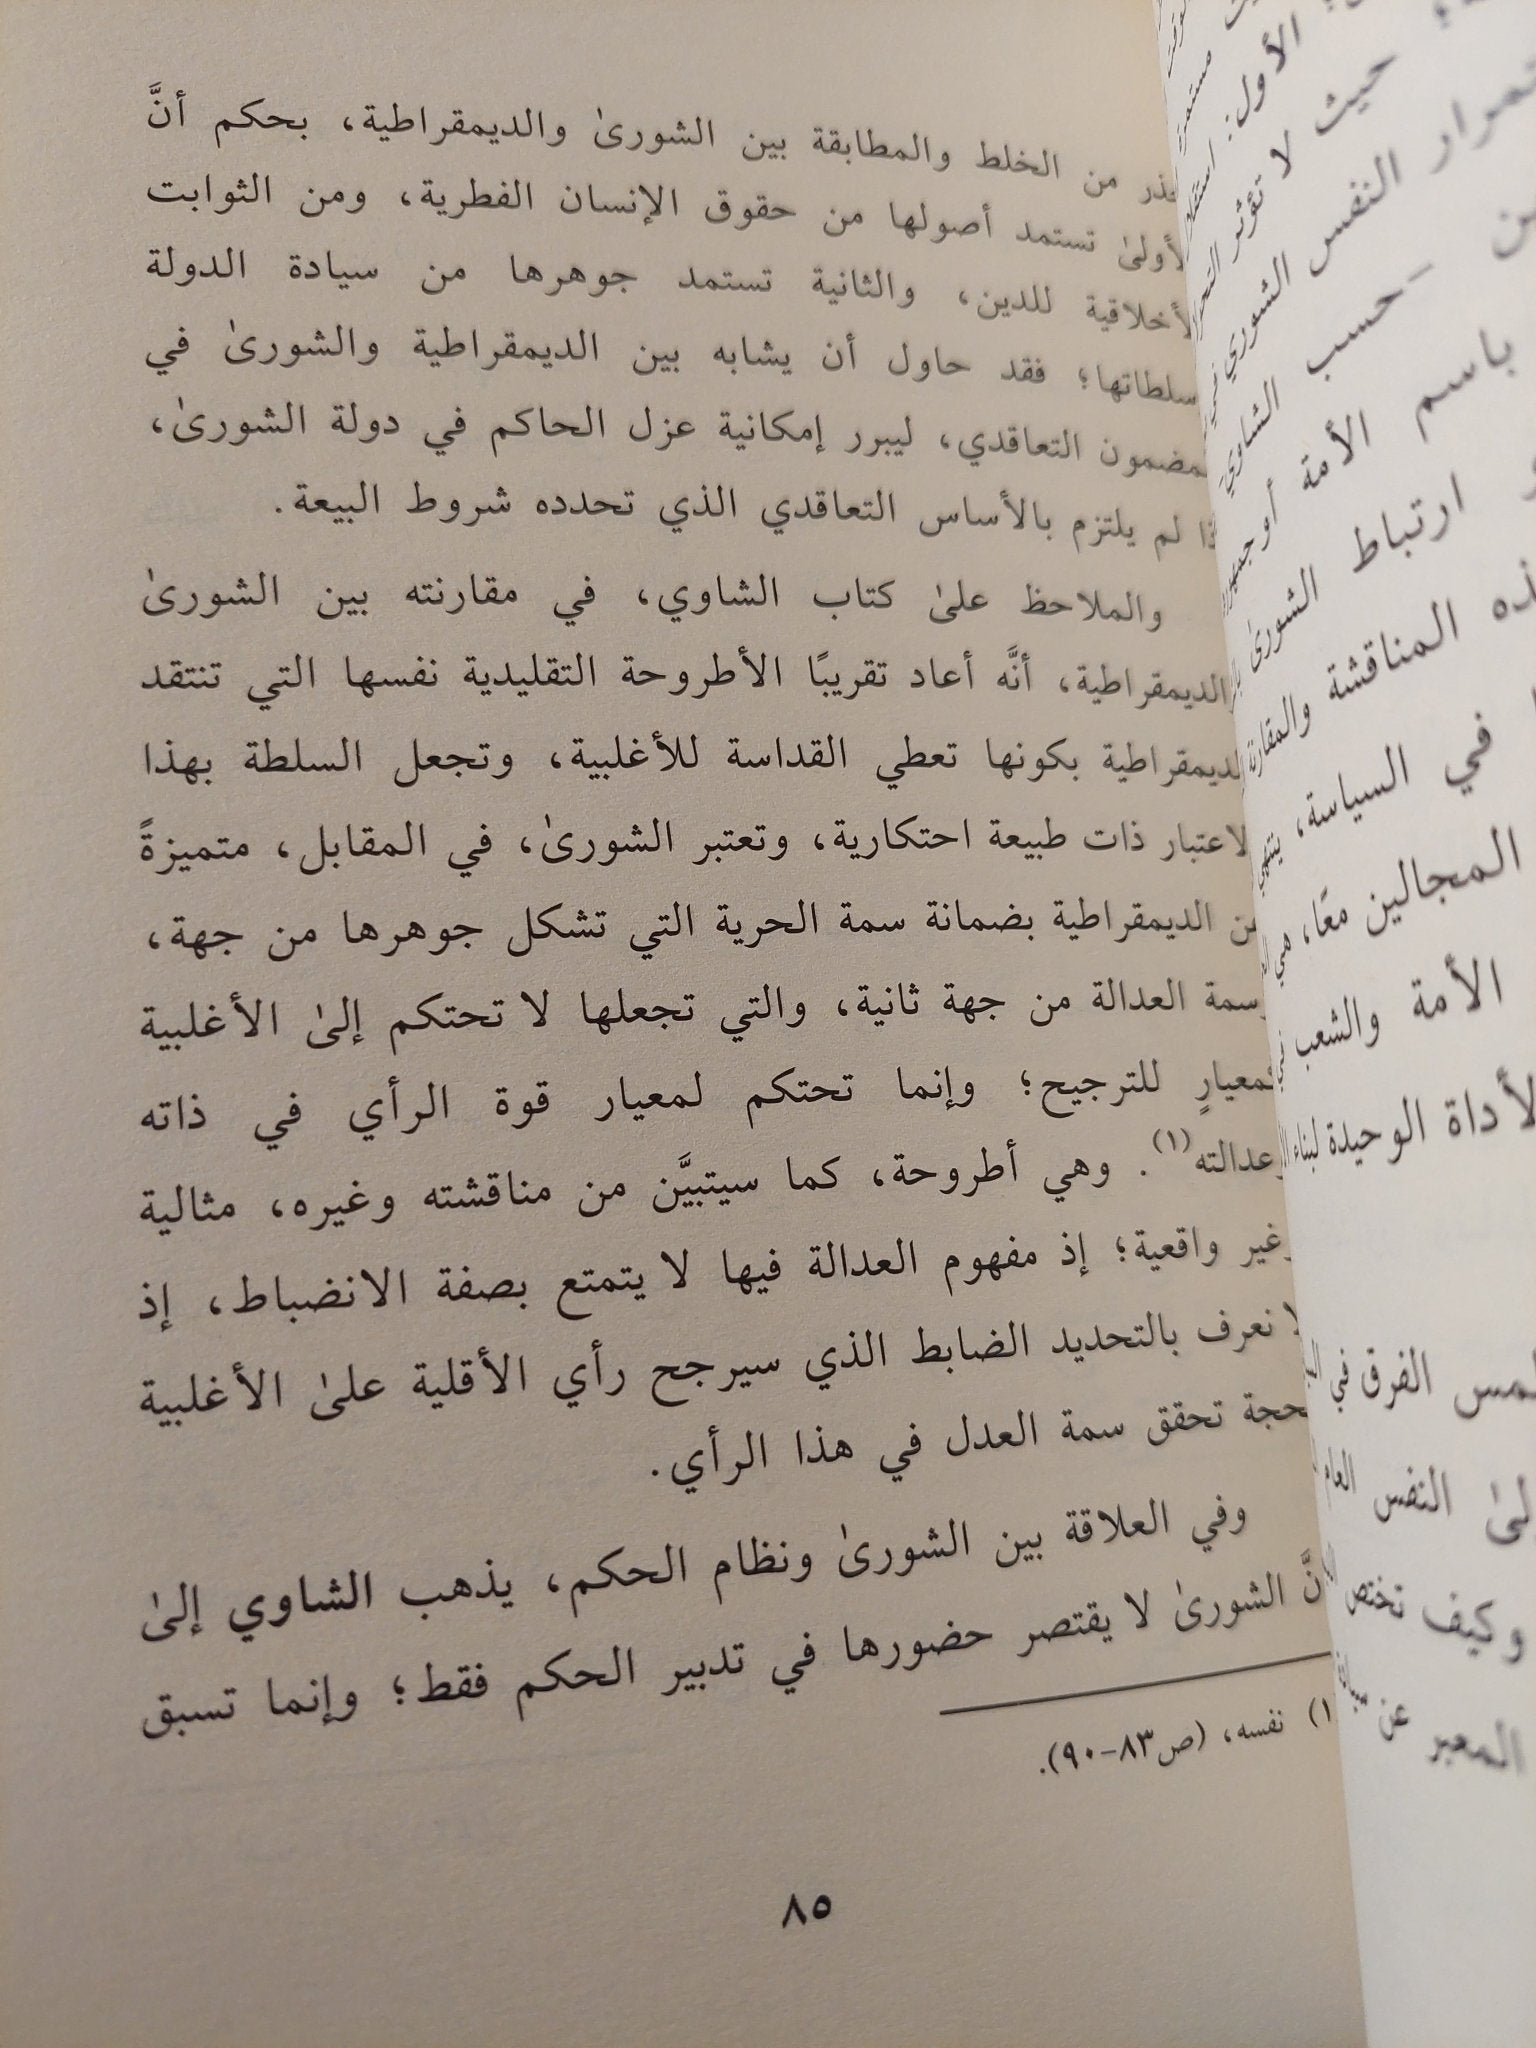 من الخلط والمطابقة بين الشورىٰ والديمقراطية، بحكم أنَّ
تستمد أصولها من حقوق الإنسان الفطرية، ومن الثوابت
للدين، والثانية تستمد جوهرها من سيادة الدولة
فقد حاول أن يشابه بين الديمقراطية والشورىٰ في
التعاقدي، ليبرر إمكانية عزل الحاكم في دولة الشورىٰ،
لم يلتزم بالأساس التعاقدي الذي تحدده شروط البيعة.
والملاحظ علىٰ كتاب الشاوي، في مقارنته بين الشورىٰ
أنَّه أعاد تقريبًا الأطروحة التقليدية نفسها التي تنتقد
بكونها تعطي القداسة للأغلبية، وتجعل السلطة بهذا
ذات طبيعة احتكارية، وتعتبر الشورىٰ، في المقابل، متميزةً
الديمقراطية بضمانة سمة الحرية التي تشكل جوهرها من جهة،
العدالة من جهة ثانية، والتي تجعلها لا تحتكم إلىٰ الأغلبية
للترجيح؛ وإنما تحتكم لمعيار قوة الرأي في ذاته
وعدالته(١). وهي أطروحة، كما سيتبيَّن من مناقشته وغيره، مثالية
وغير واقعية؛ إذ مفهوم العدالة فيها لا يتمتع بصفة الانضباط، إذ
لا نعرف بالتحديد الضابط الذي سيرجح رأي الأقلية علىٰ الأغلبية
تحقق سمة العدل في هذا الرأي.
وفي العلاقة بين الشورىٰ ونظام الحكم، يذهب الشاوي إلىٰ
الشورىٰ لا يقتصر حضورها في تدبير الحكم فقط؛ وإنما تسبق
١) نفسه، (ص٨٣-٩٠).
٨٥
حيث لا تؤثر
النفس الشوري
حسب الشاوي
باسم الأمة
ارتباط الشورىٰ
المناقشة والمقارنة
في السياسة،
المجالين معًا،
الأمة والشعب
الأداة الوحيدة لبناء
الفرق في
النفس العام
وكيف تختص
المعبر عن